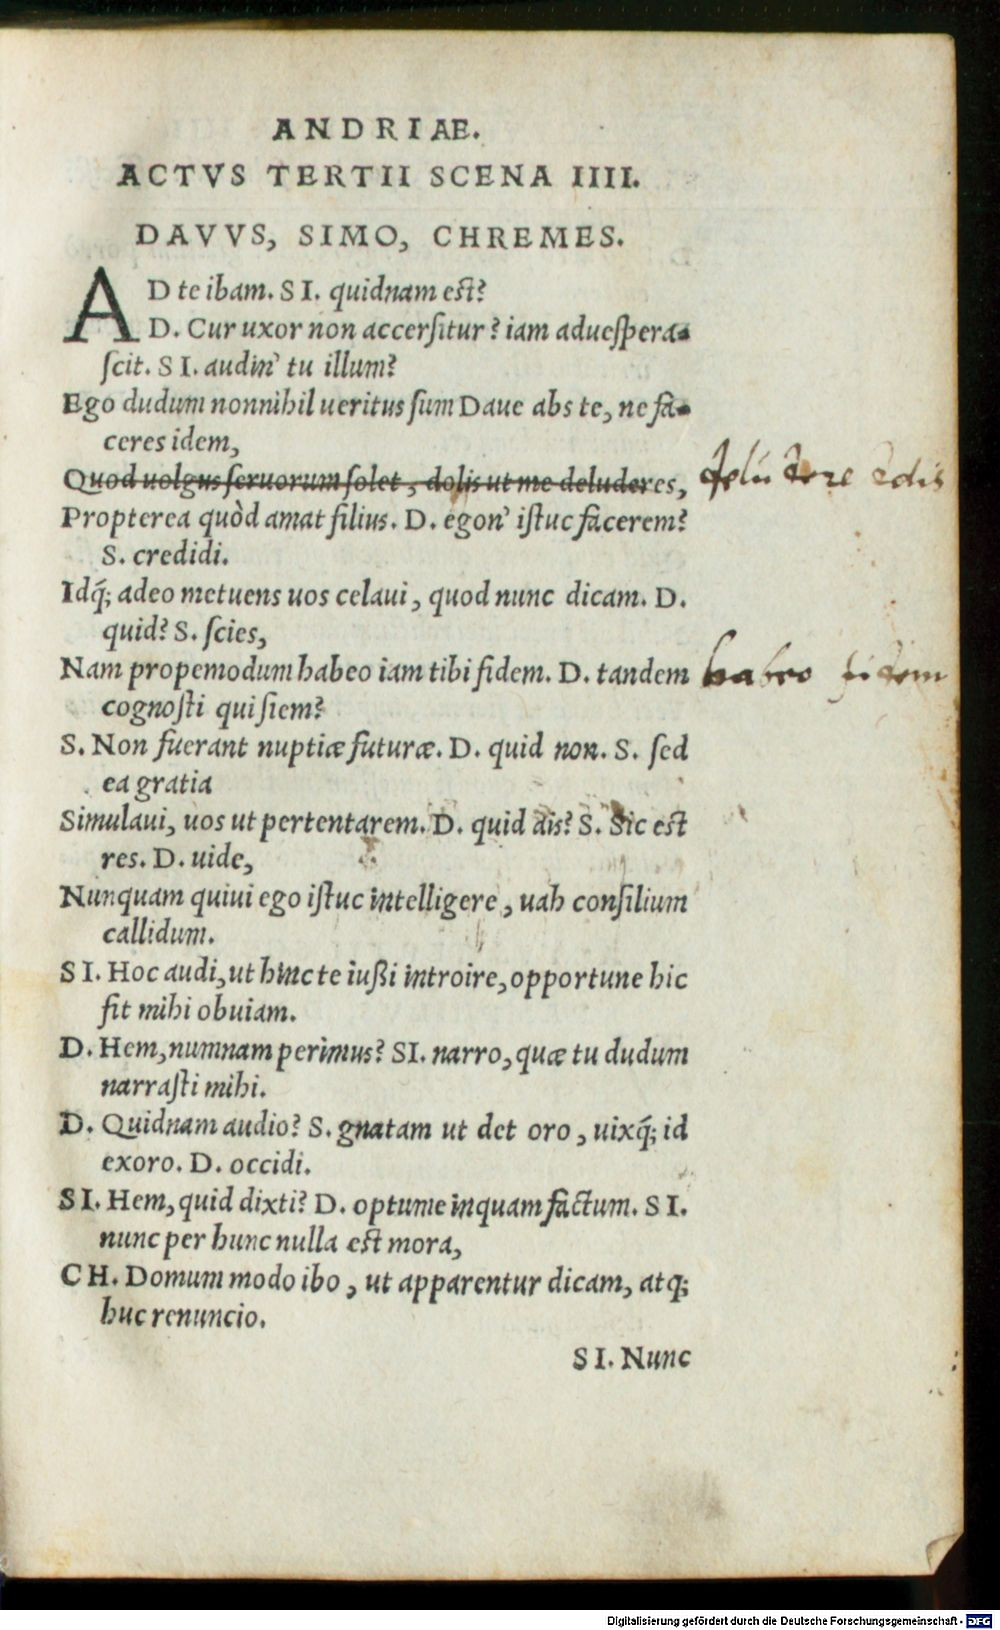 ANDRIAE.
ACTVS TERTII SCENA IIII.
DAVVS, SIMO, CHREMES.
AD te ibam. SI. quidnam est?
D. Cur uxor non accersitur? iam aduespera-
scit. SI. audin' tu illum?
Ego dudum nonnihil ueritus sum Daue abs te, ne fa-
ceres idem,
Quod uolgus seruorum solet, dolis ut me deluderes, deludere dolis
Propterea quòd amat filius. D. egon' istuc facerem?
S. credidi.
Idq́; adeo metuens uos celaui, quod nunc dicam. D.
quid? S. scies,
Nam propemodum habeo iam tibi fidem. D. tandem habeo fidem
cognosti qui siem?
S. Non fuerant nuptiæ futuræ. D. quid non. S. sed
ea gratia
Simulaui, uos ut pertentarem. D. quid ais? S. Sic est
res. D. uide,
Nunquam quiui ego istuc intelligere, uah consilium
callidum.
SI. Hoc audi, ut hinc te iußi introire, opportune hic
fit mihi obuiam.
D. Hem, numnam perimus? SI. narro, quæ tu dudum
narrasti mihi.
D. Quidnam audio? S. gnatam ut det oro, uixq́; id
exoro. D. occidi.
SI. Hem, quid dixti? D. optume inquam factum. SI.
nunc per hunc nulla est mora,
CH. Domum modo ibo, ut apparentur dicam, atq;
huc renuncio.
SI. Nunc
Digitalisierung gefördert durch die Deutsche Forschungsgemeinschaft - DFG